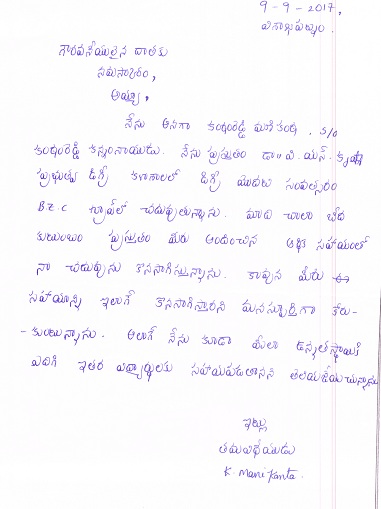 9-9-2017,
విశాఖపట్నం.
గౌరవనీయులైన దాతకు
నమస్కారం,
అయ్యా,
నేను అనగా కంచంరెడ్డి మణికంఠ. S/o
కంచంరెడ్డి కన్నంనాయుడు. నేను ప్రస్తుతం డా॥ వి.యస్. కృష్ణా
ప్రభుత్వ డిగ్రీ కళాశాలలో డిగ్రీ మొదటి సంవత్సరం
B.Z.C గ్రూప్‌లో చదువుతున్నాను. మాది చాలా పేద
కుటుంబం ప్రస్తుతం మీరు అందించిన ఆర్థిక సహాయంతో
నా చదువును కొనసాగిస్తున్నాను. కావున మీరు ఈ
సహాయాన్ని ఇలాగే కొనసాగిస్తారని మనస్ఫూర్తిగా కోరు-
-కుంటున్నాను. అలాగే నేను కూడా మీలా ఉన్నతస్థాయికి
ఎదిగి ఇతర విద్యార్థులకు సహాయపడతానని తెలియజేయుచున్నాను
ఇట్లు
తమవిధేయుడు
K. Manikanta.